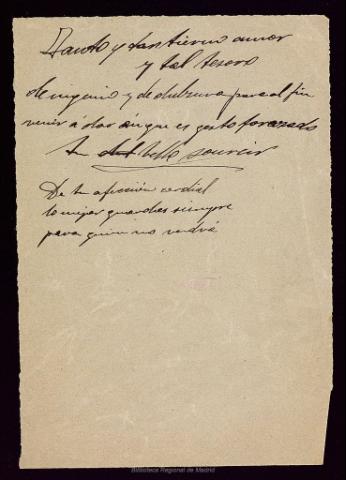 Tanto y tan tierno amor
y tal tesoro
de ingenio y de dulzura para al fin
venir a dar en que es gesto forzado
tu bello sonreir
De tu afición cordial
lo mejor guardas siempre
para quien no vendrá
Biblioteca Regional de Madrid